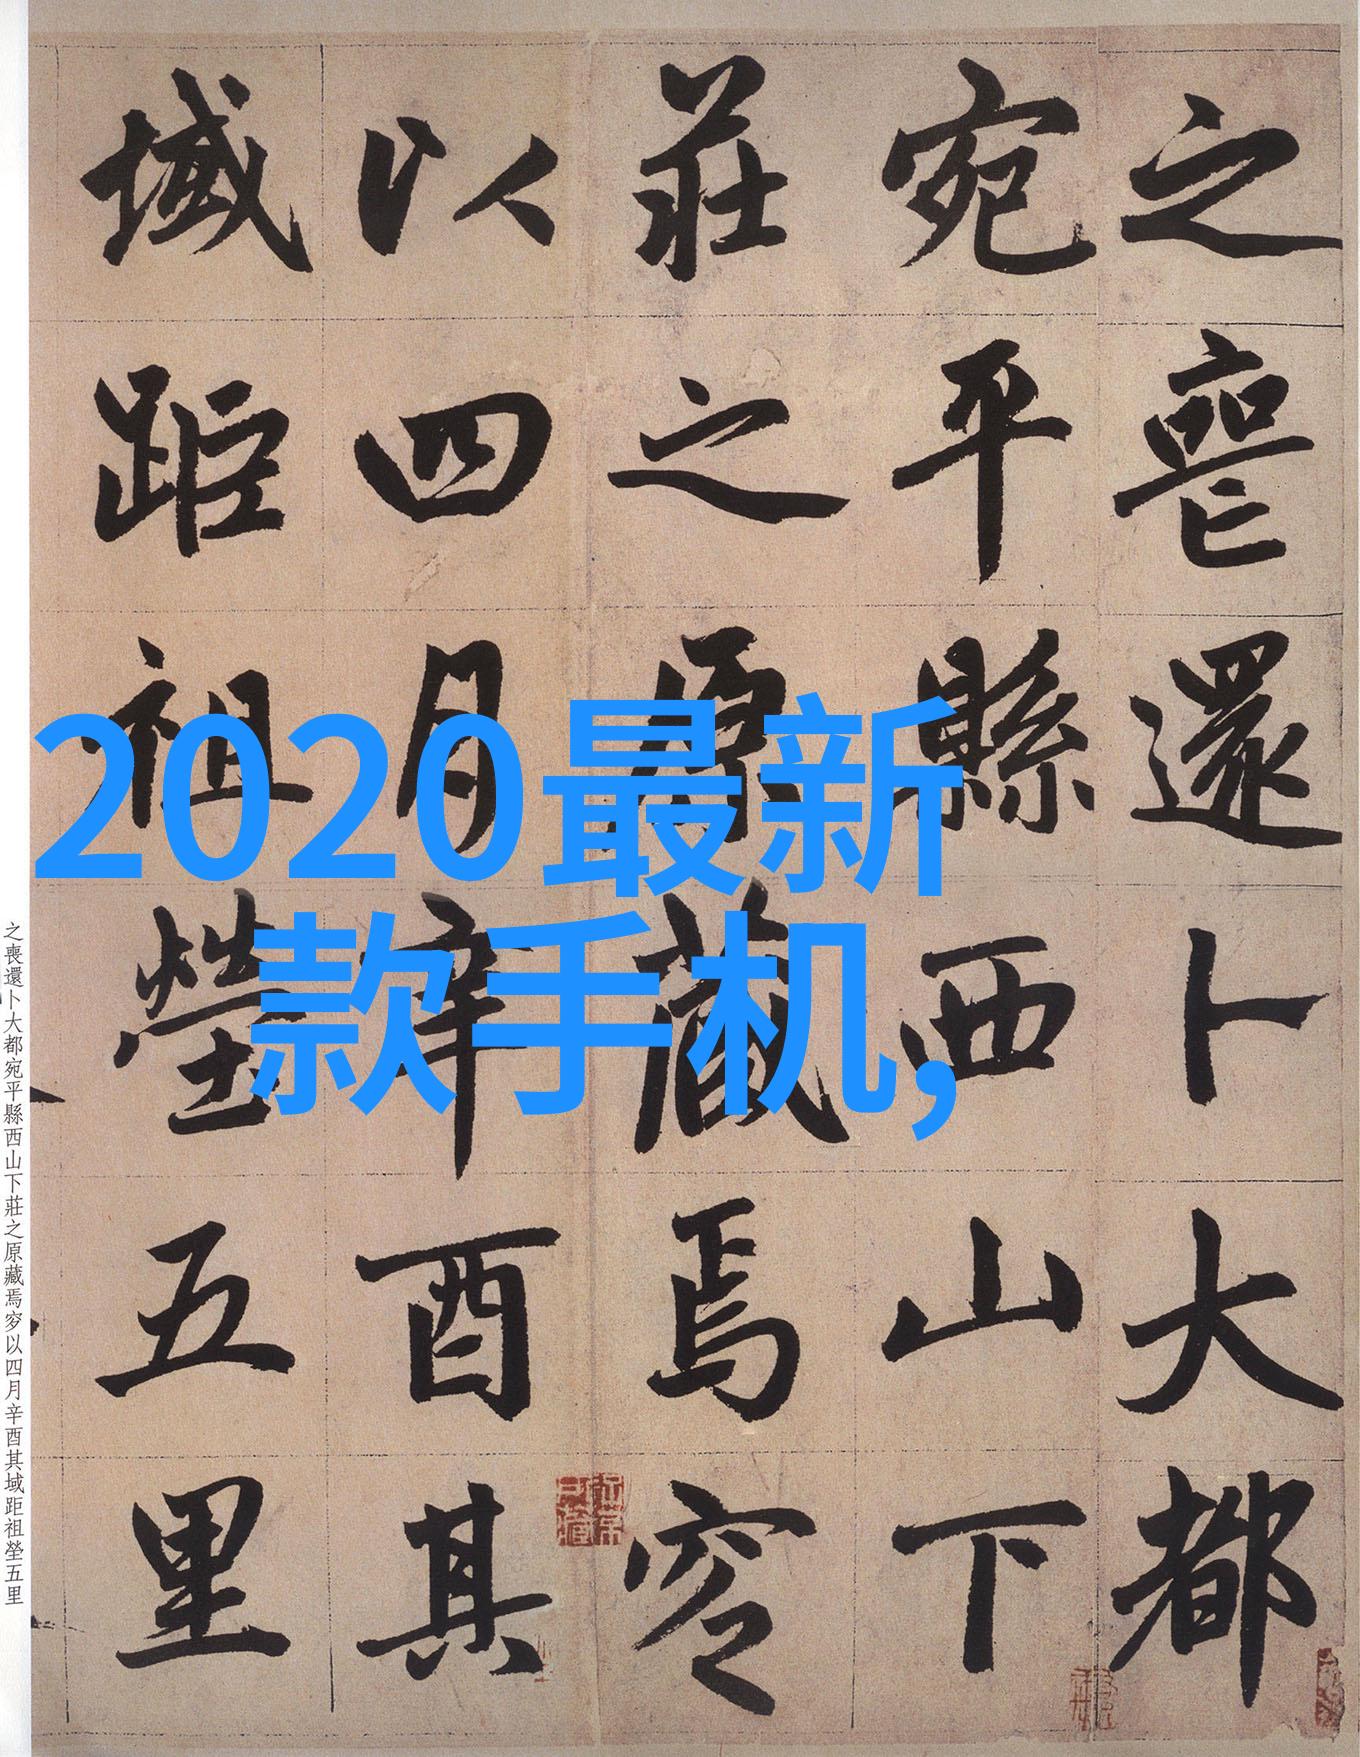 之喪還卜大都
宛平縣西山下
莊之原藏焉穸
以四月辛酉其
域距祖塋五里
2020最新
款手机,
之喪還卜大都宛平縣西山下莊之原藏焉穸以四月辛酉其域距祖塋五里